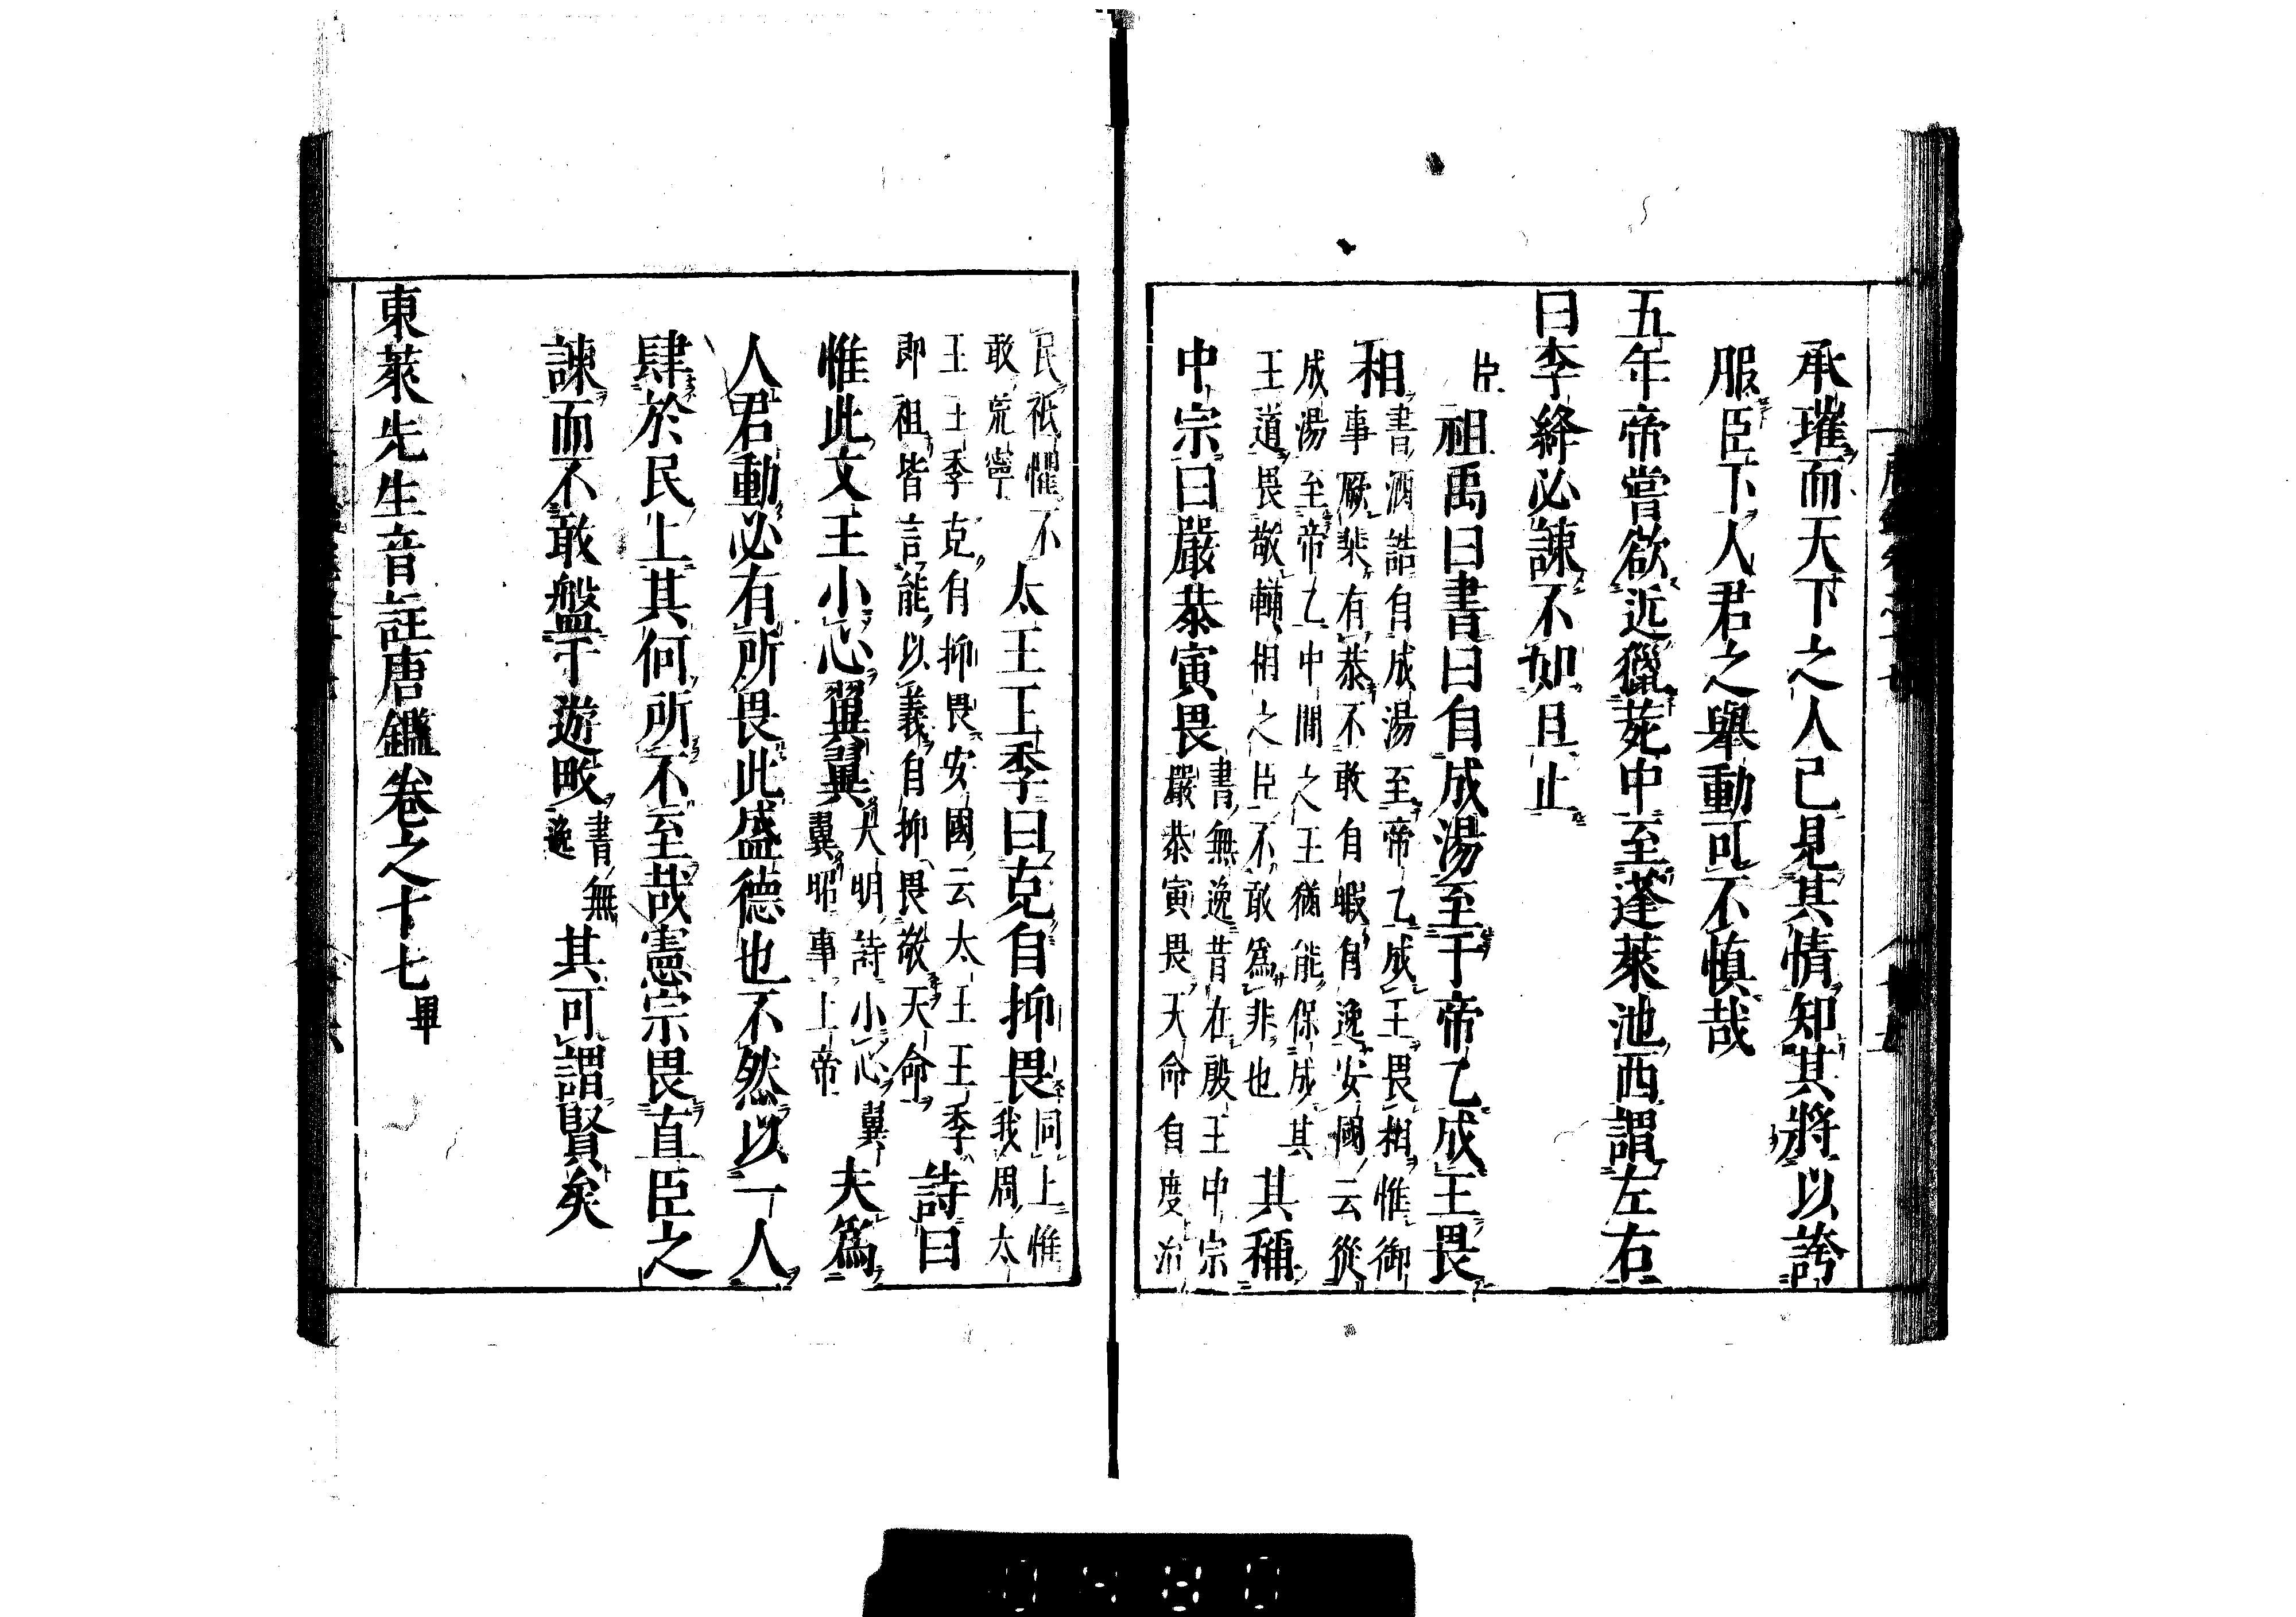 承璀而天下之人已見其情知其將以誇
服臣下人君之舉動可不慎哉
五年帝嘗欲近獵苑中至蓬萊池西謂左右
曰李絳必諫不如且止
臣祖禹曰書曰自成湯至于帝乙成王畏
相書酒誥自成湯至帝乙成王畏相惟御
事厥棐有恭不敢自暇自逸安國云從
成湯至帝乙中間之王猶能保成其
王道畏敬輔相之臣不敢爲非也其稱
中宗曰嚴恭寅畏書無逸昔在殷王中宗
嚴恭寅畏天命自度治
民祗懼不
敢荒寧太王王季曰克自抑畏同上惟
我周太
王王季克自抑畏安國云太王王季
即祖皆言能以義自抑畏敬天命詩曰
惟此文王小心翼翼大明詩小心翼
翼昭事上帝夫爲
人君動必有所畏此盛德也不然以一人
肆於民上其何所不至哉憲宗畏直臣之
諫而不敢盤于遊畋書無
逸其可謂賢矣
東萊先生音註唐鑑卷之十七畢